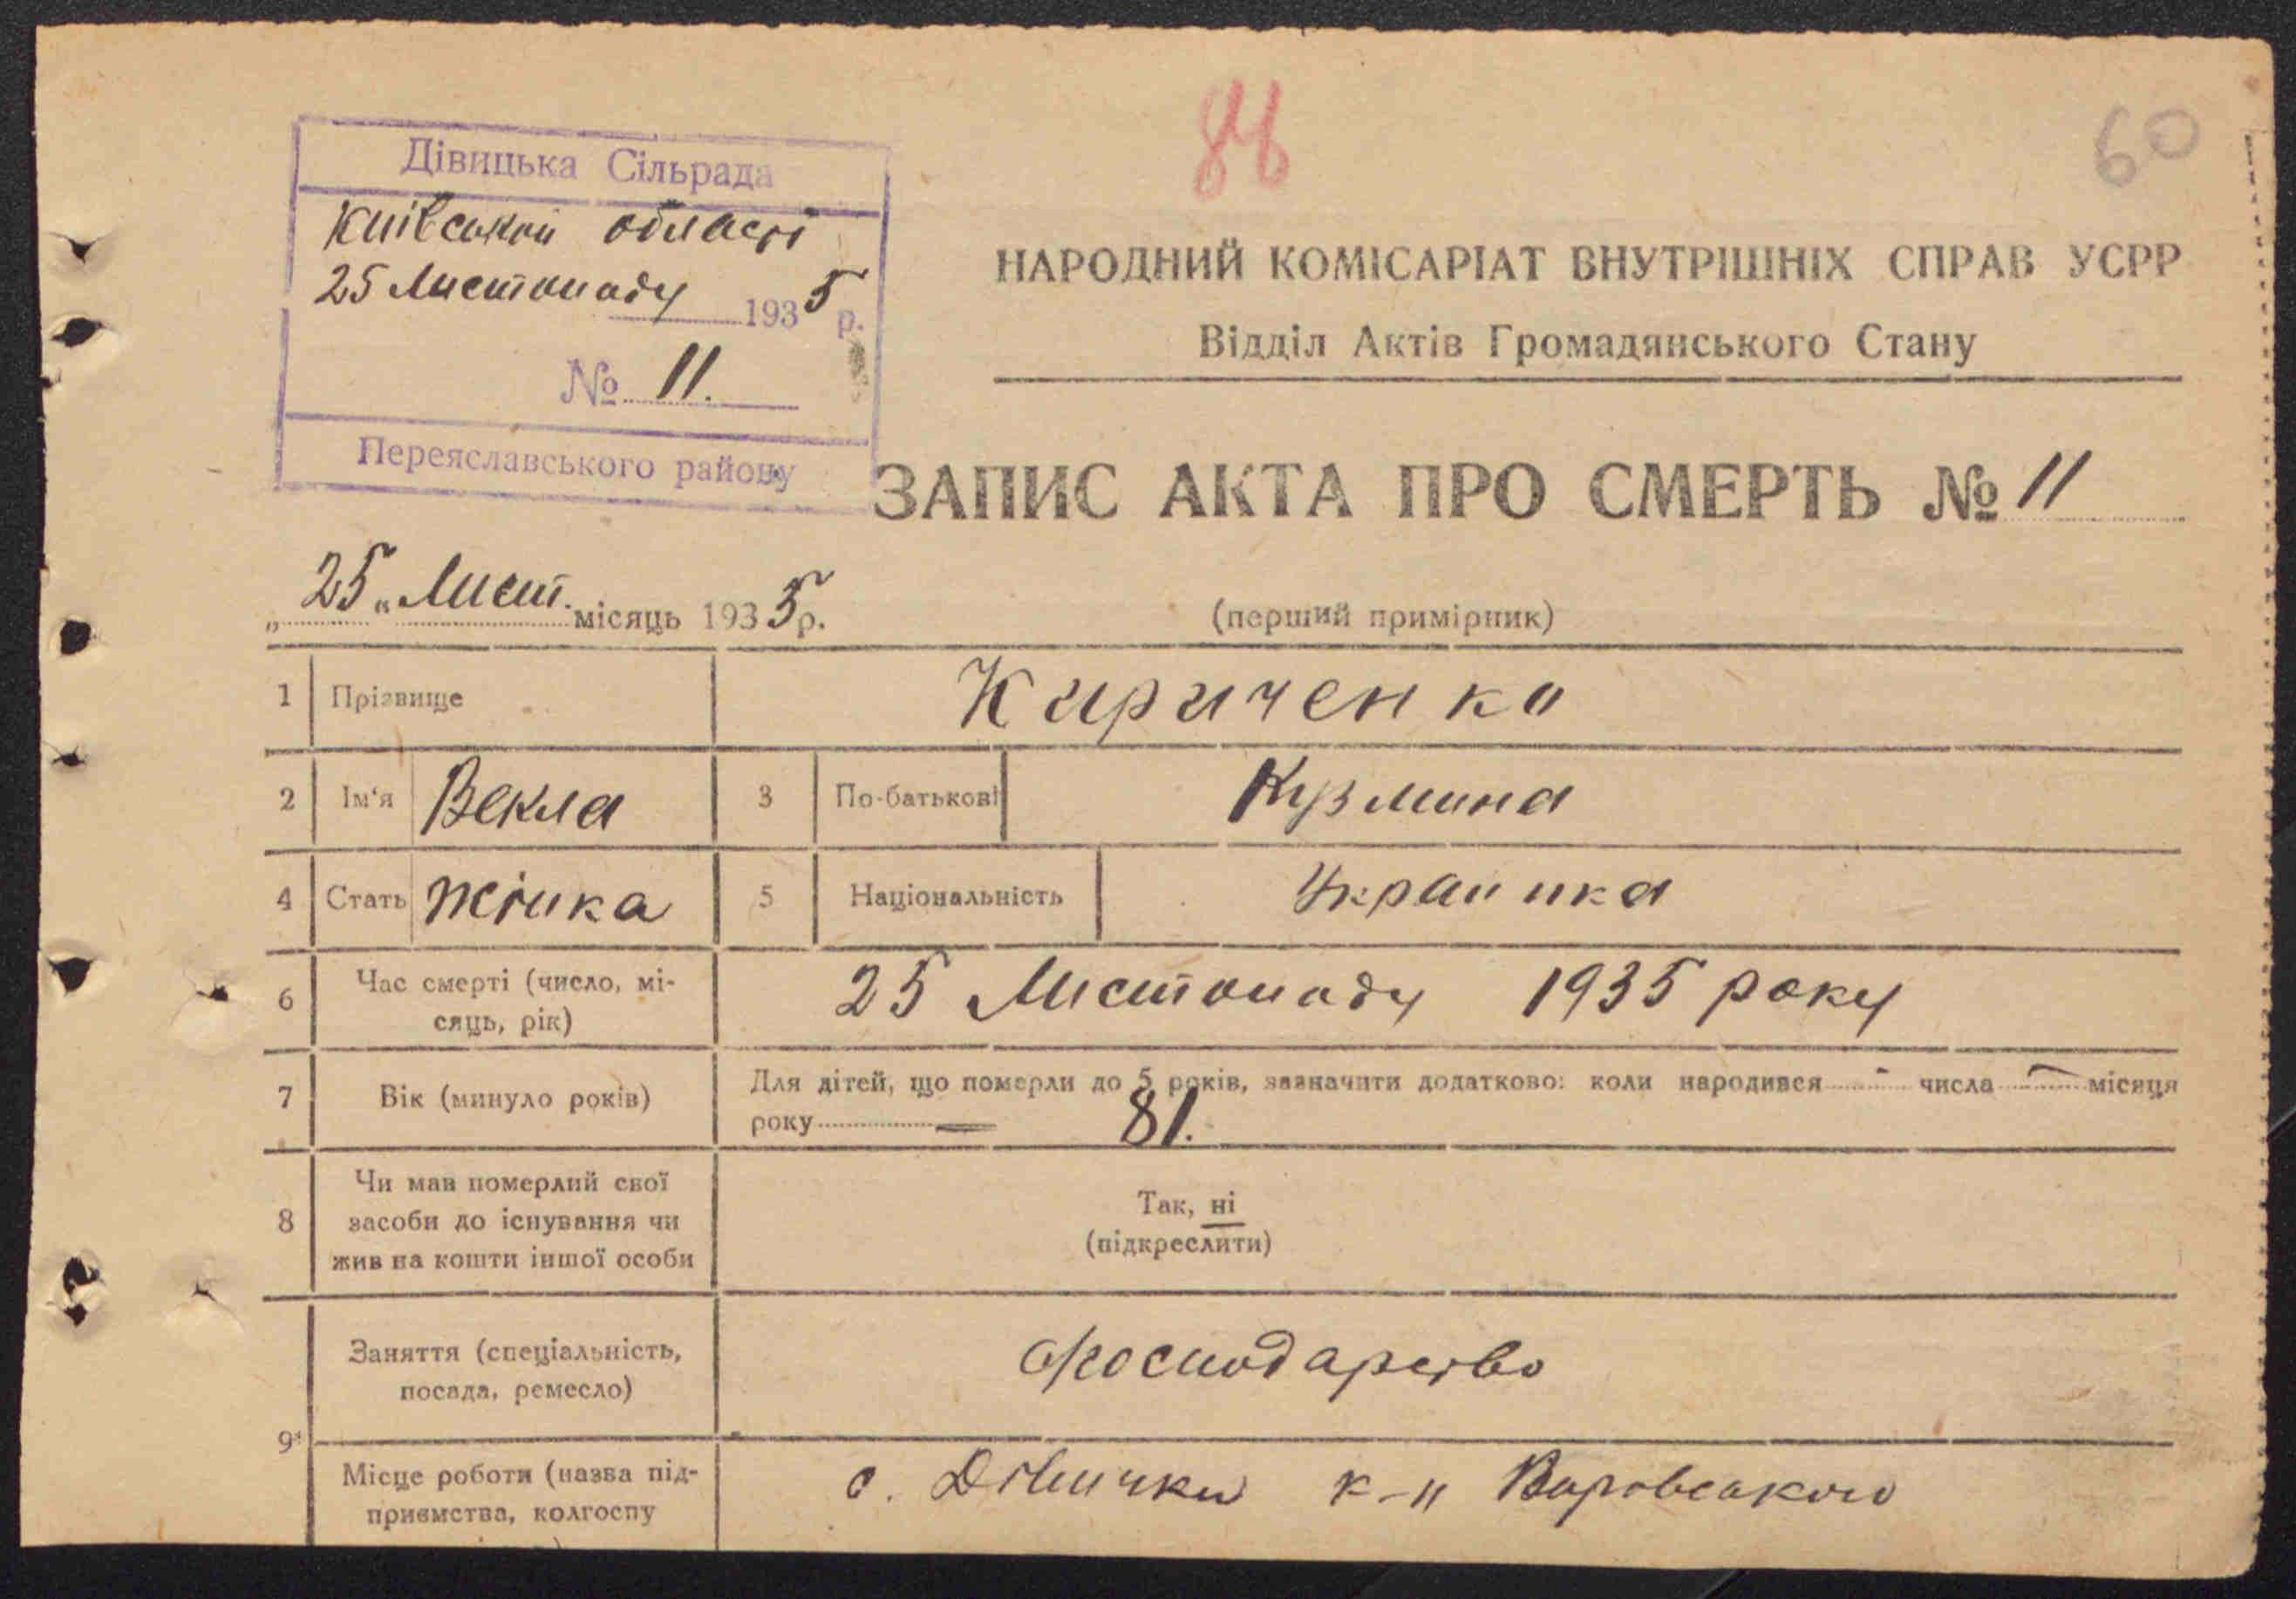 86
60
Дівицька Сільрада
Київської області
25 Листопаду 1935 р.
№ 11.
Переяславського району
НАРОДНИЙ КОМІСАРІАТ ВНУТРІШНІХ СПРАВ УСРР
Відділ Актів Громадянського Стану
ЗАПИС АКТА ПРО СМЕРТЬ № 11
„25“ Лист. місяць 1935 р.
(перший примірник)
1 Прізвище Кириченко
2 Ім'я Векла 3 По-батькові Кузмина
4 Стать жінка 5 Національність Украинка
6 Час смерті (число, мі-
сяць, рік) 25 Листопаду 1935 року
7 Вік (минуло років) Для дітей, що померли до 5 років, зазначити додатково: коли народився - числа - місяця
року — 81.
8 Чи мав померлий свої
засоби до існування чи
жив на кошти іншої особи
Так, ні
(підкреслити)
9 Заняття (спеціальність,
посада, ремесло) господарство
Місце роботи (назва під-
приємства, колгоспу
с. Дівички к-п Воровського